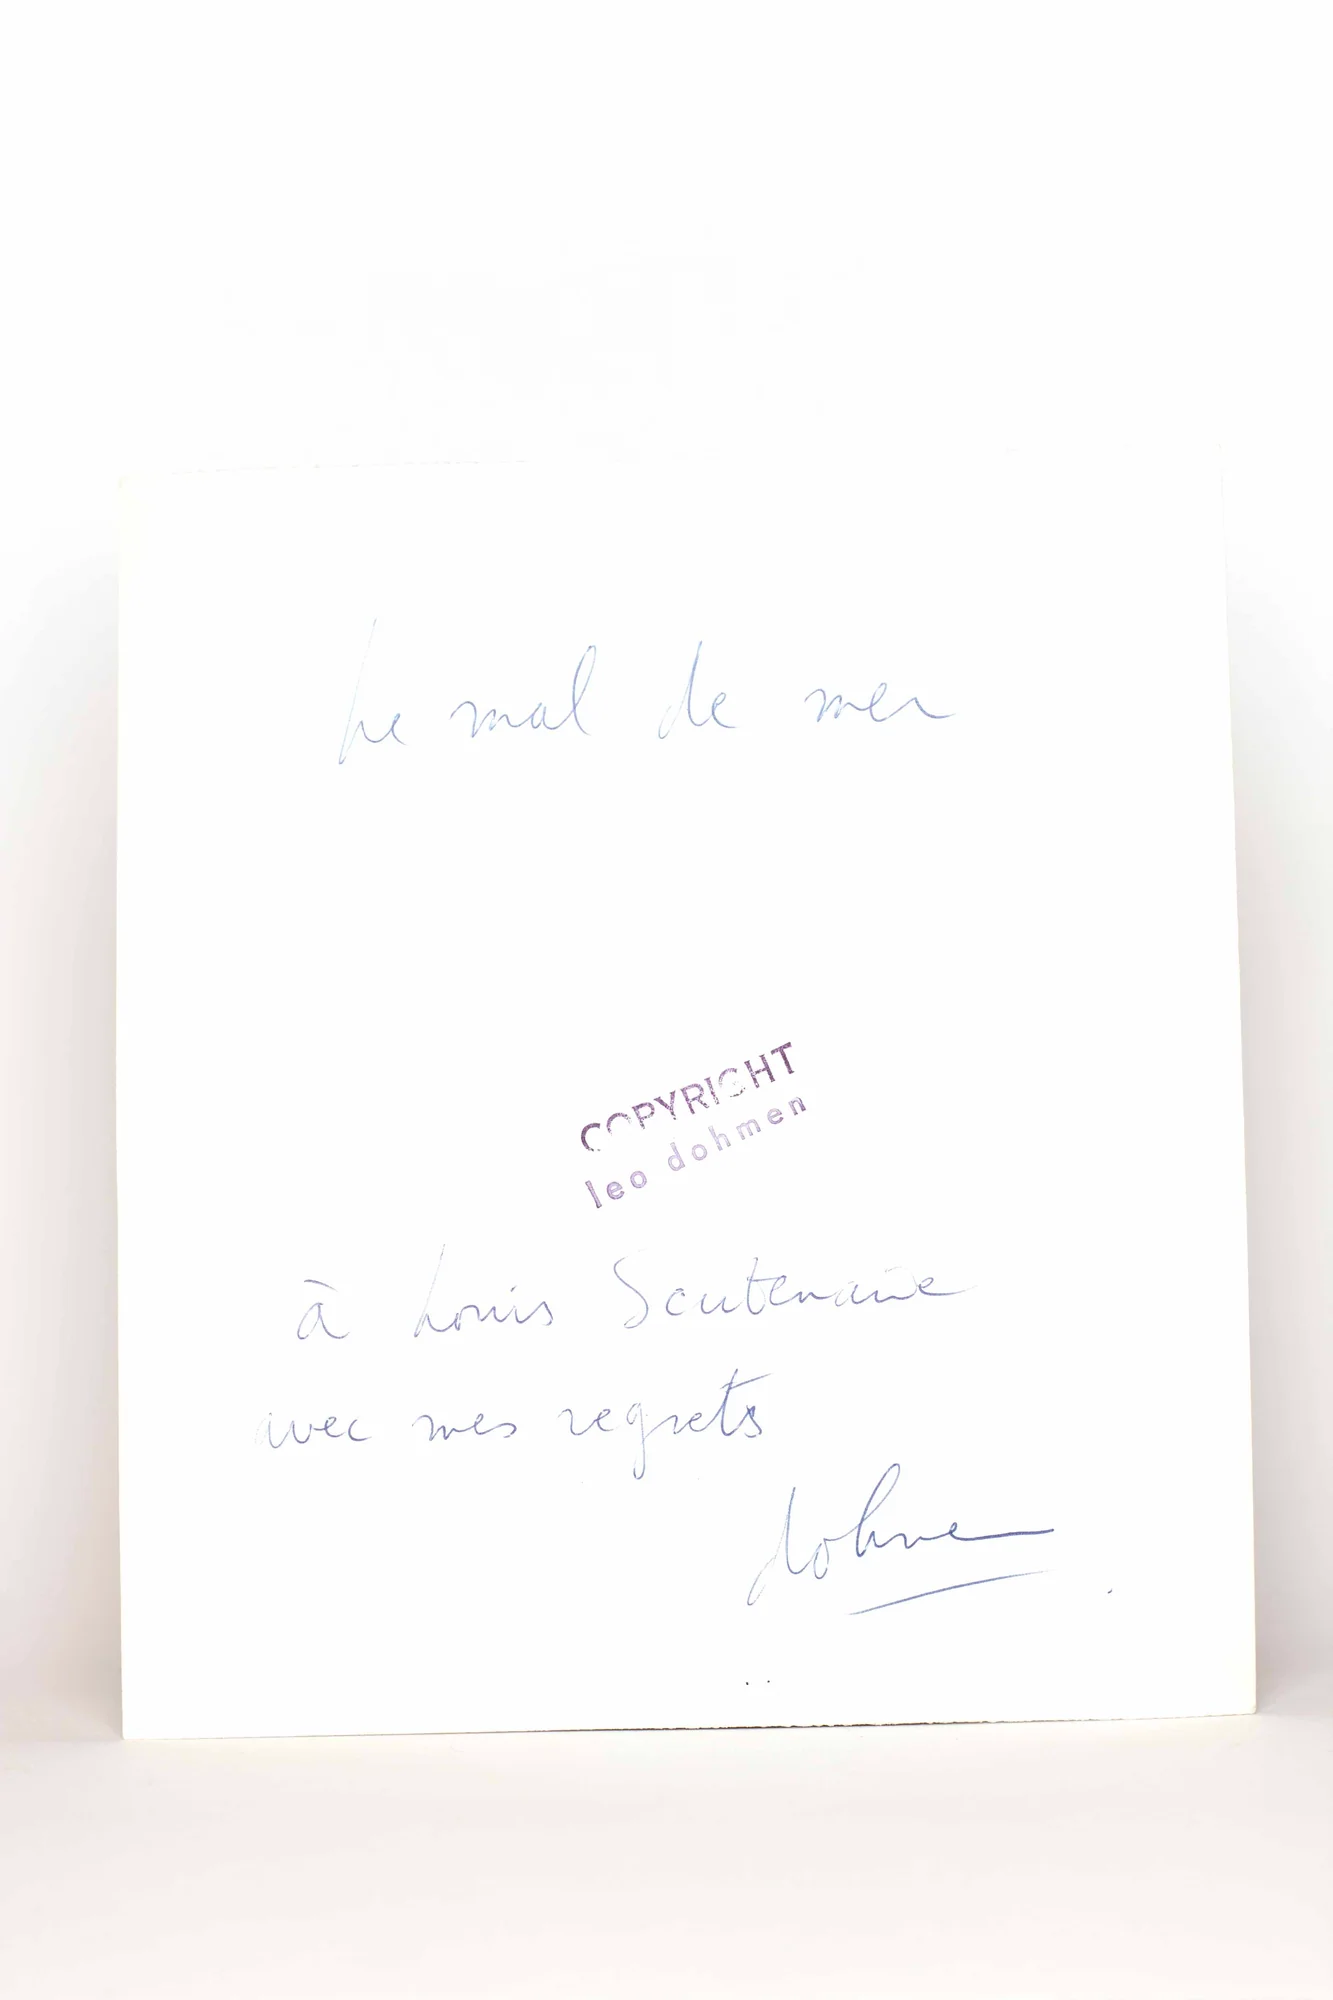 Le mal de mer
COPYRIGHT
leo dohmen
à Louis Scutenaire
avec mes regrets
dohmen